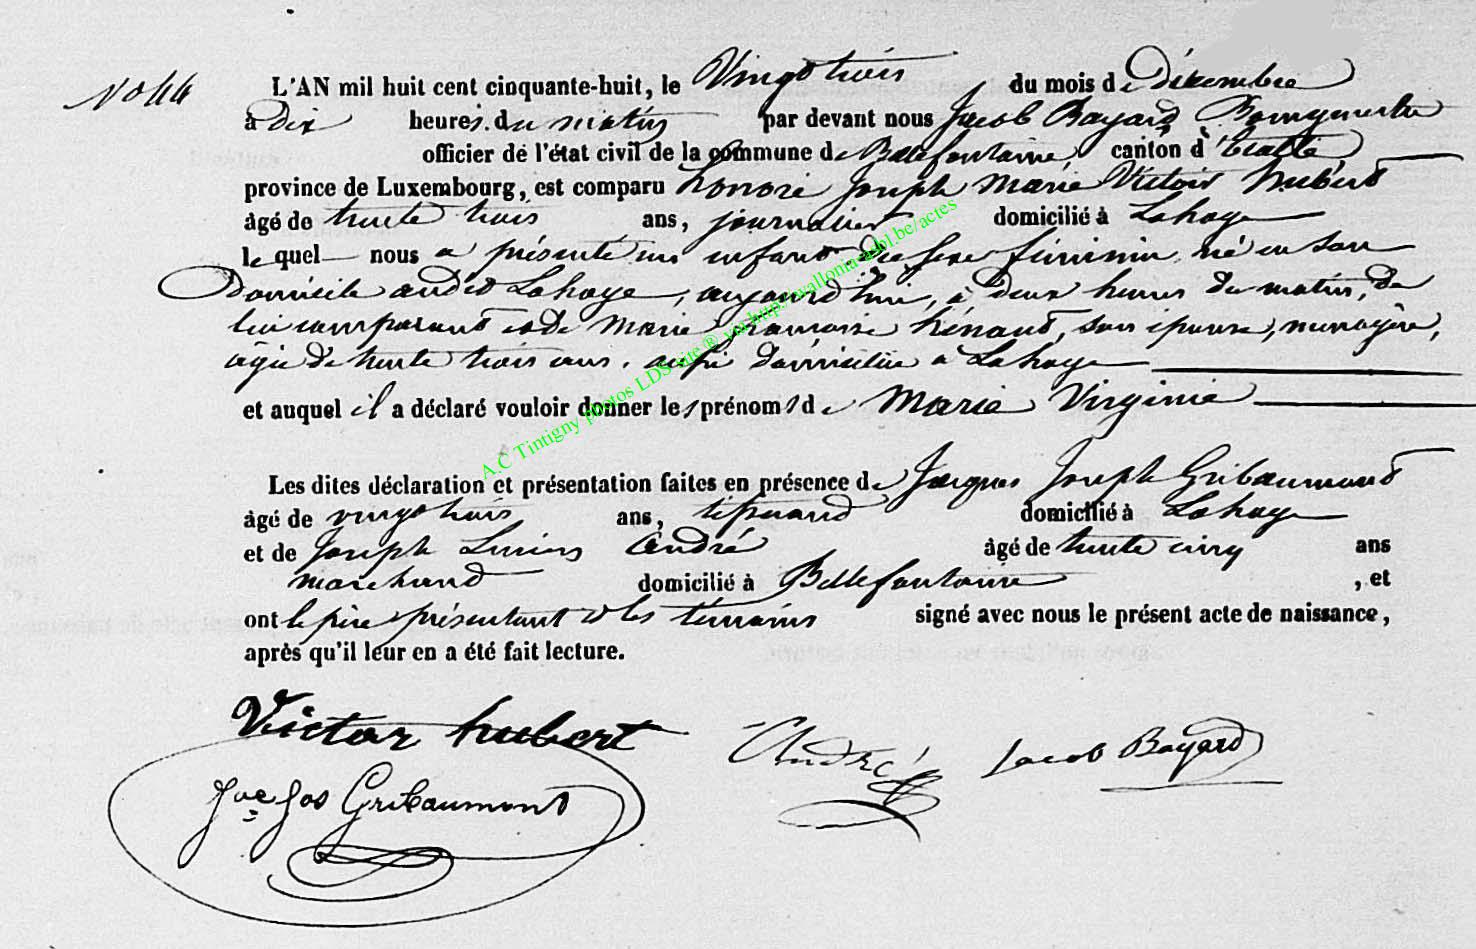 No 44
L'AN mil huit cent cinquante-huit, le Vingt trois du mois de décembre
à dix heures du matin par devant nous Jacob Bayard Bourgmestre
officier de l'état civil de la commune de Bellefontaine, canton d'Etalle,
province de Luxembourg, est comparu honoré Joseph Marie Victoir hubert
âgé de trente trois ans, journalier domicilié à Lahage
lequel nous a présenté un enfant du sexe féminin né en son
Domicile audit Lahage, aujourd'hui, à deux heures du matin, de
lui comparant et de Marie françoise hénaut, son épouse, menagère,
agée de trente trois ans, aussi domiciliée à Lahage
et auquel il a déclaré vouloir donner les prénoms de Marie Virginie
Les dites déclaration et présentation faites en présence de Jacques Joseph Gribaumont
âgé de vingt trois ans, tisserand domicilié à Lahage
et de Joseph Lucien André âgé de trente cinq ans
marchand domicilié à Bellefontaine , et
ont le père présentant et les témoins signé avec nous le présent acte de naissance,
après qu'il leur en a été fait lecture.
Victor hubert
André
Jacob Bayard
Jque Jos Gribaumont
A.C Tintigny photos LDS site ® via http://wallonia-asbl.be/actes